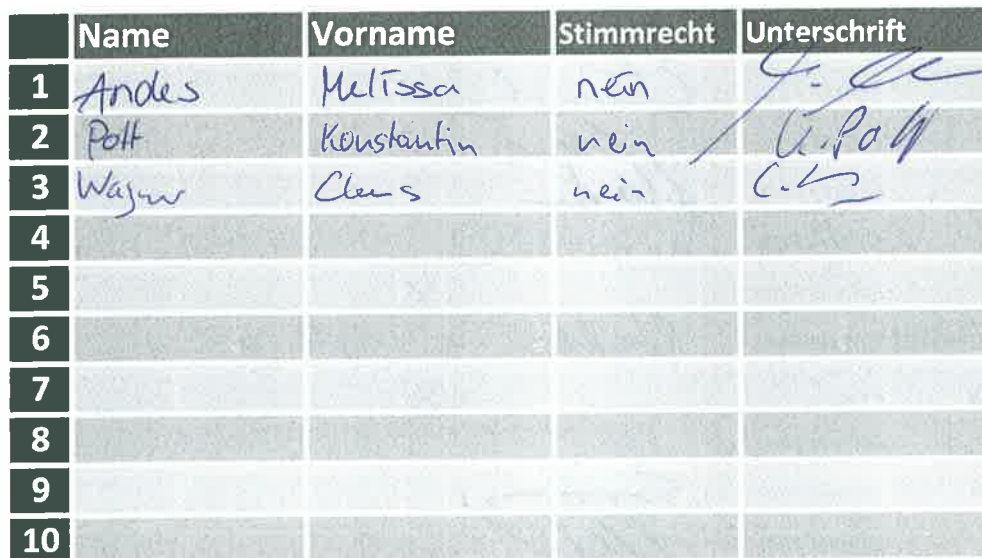 Name Vorname Stimmrecht Unterschrift
1 Andes Melissa nein
2 Pott Konstantin nein K. Pott
3 Wagner nein
4
5
6
7
8
9
10